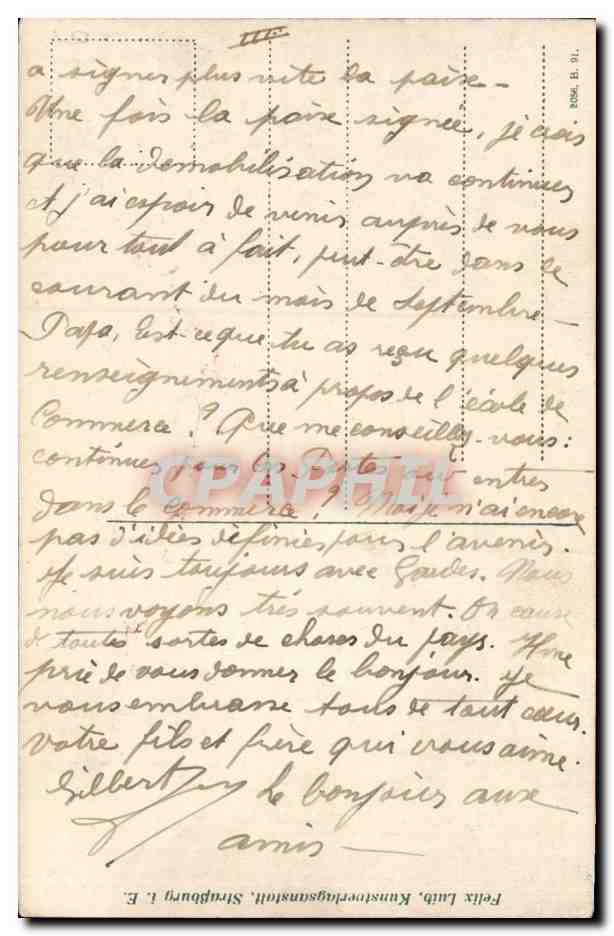 III.
a signer plus vite la paix –
Une fois la paix signée, je crois
que la démobilisation va continuer
et j'ai espoir de venir auprès de vous
pour tout à fait, peut-être dans le
courant du mois de Septembre –
Papa, Est-ce que tu as reçu quelques
renseignements à propos de l'école de
Commerce ? Que me conseillez-vous :
continuer pour les Postes ou entrer
dans le commerce ? Moi je n'ai encore
pas d'idées définies pour l'avenir.
Je suis toujours avec Gardes. Nous
nous voyons très souvent. On cause
de toutes sortes de choses du pays. Il me
prie de vous donner le bonjour. Je
vous embrasse tous de tout cœur.
Votre fils et frère qui vous aime.
Gilbert
Le bonjour aux
amis –
2056. B. 91.
CPAPHIL
Felix Luib, Kunstverlagsanstalt, Straßburg i. E.